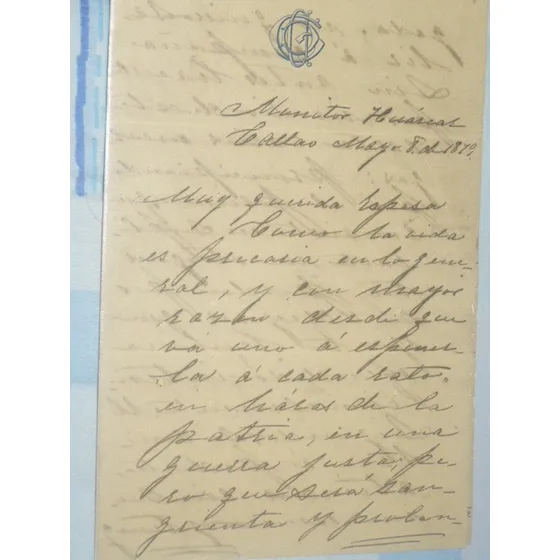 Monitor Huáscar
Callao Mayo 8. d. 1879,
Muy querida Esposa
Como la vida
es precaria en lo gene-
ral, y con mayor
razon desde que
va uno á esponer-
la á cada rato,
en háras de la
patria, en una
guerra justa, pe-
ro que será san-
grienta y prolon-